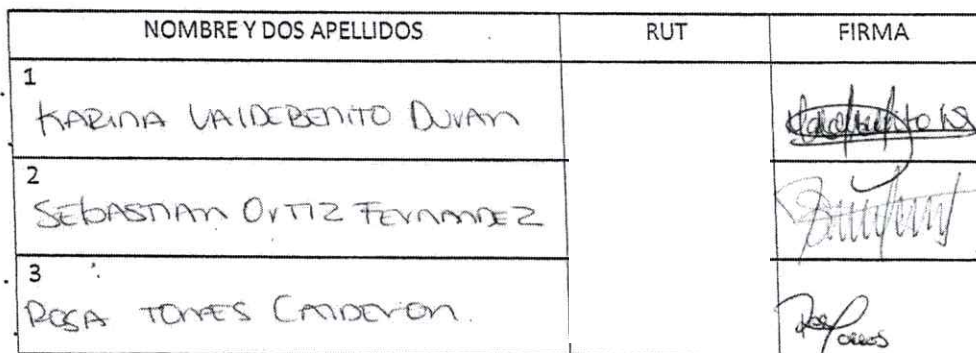 NOMBRE Y DOS APELLIDOS RUT FIRMA
1
KARINA VALDEBENITO DURAN
2
SEBASTIAN ORTIZ FERNANDEZ
3
ROSA TORRES CALDERON.